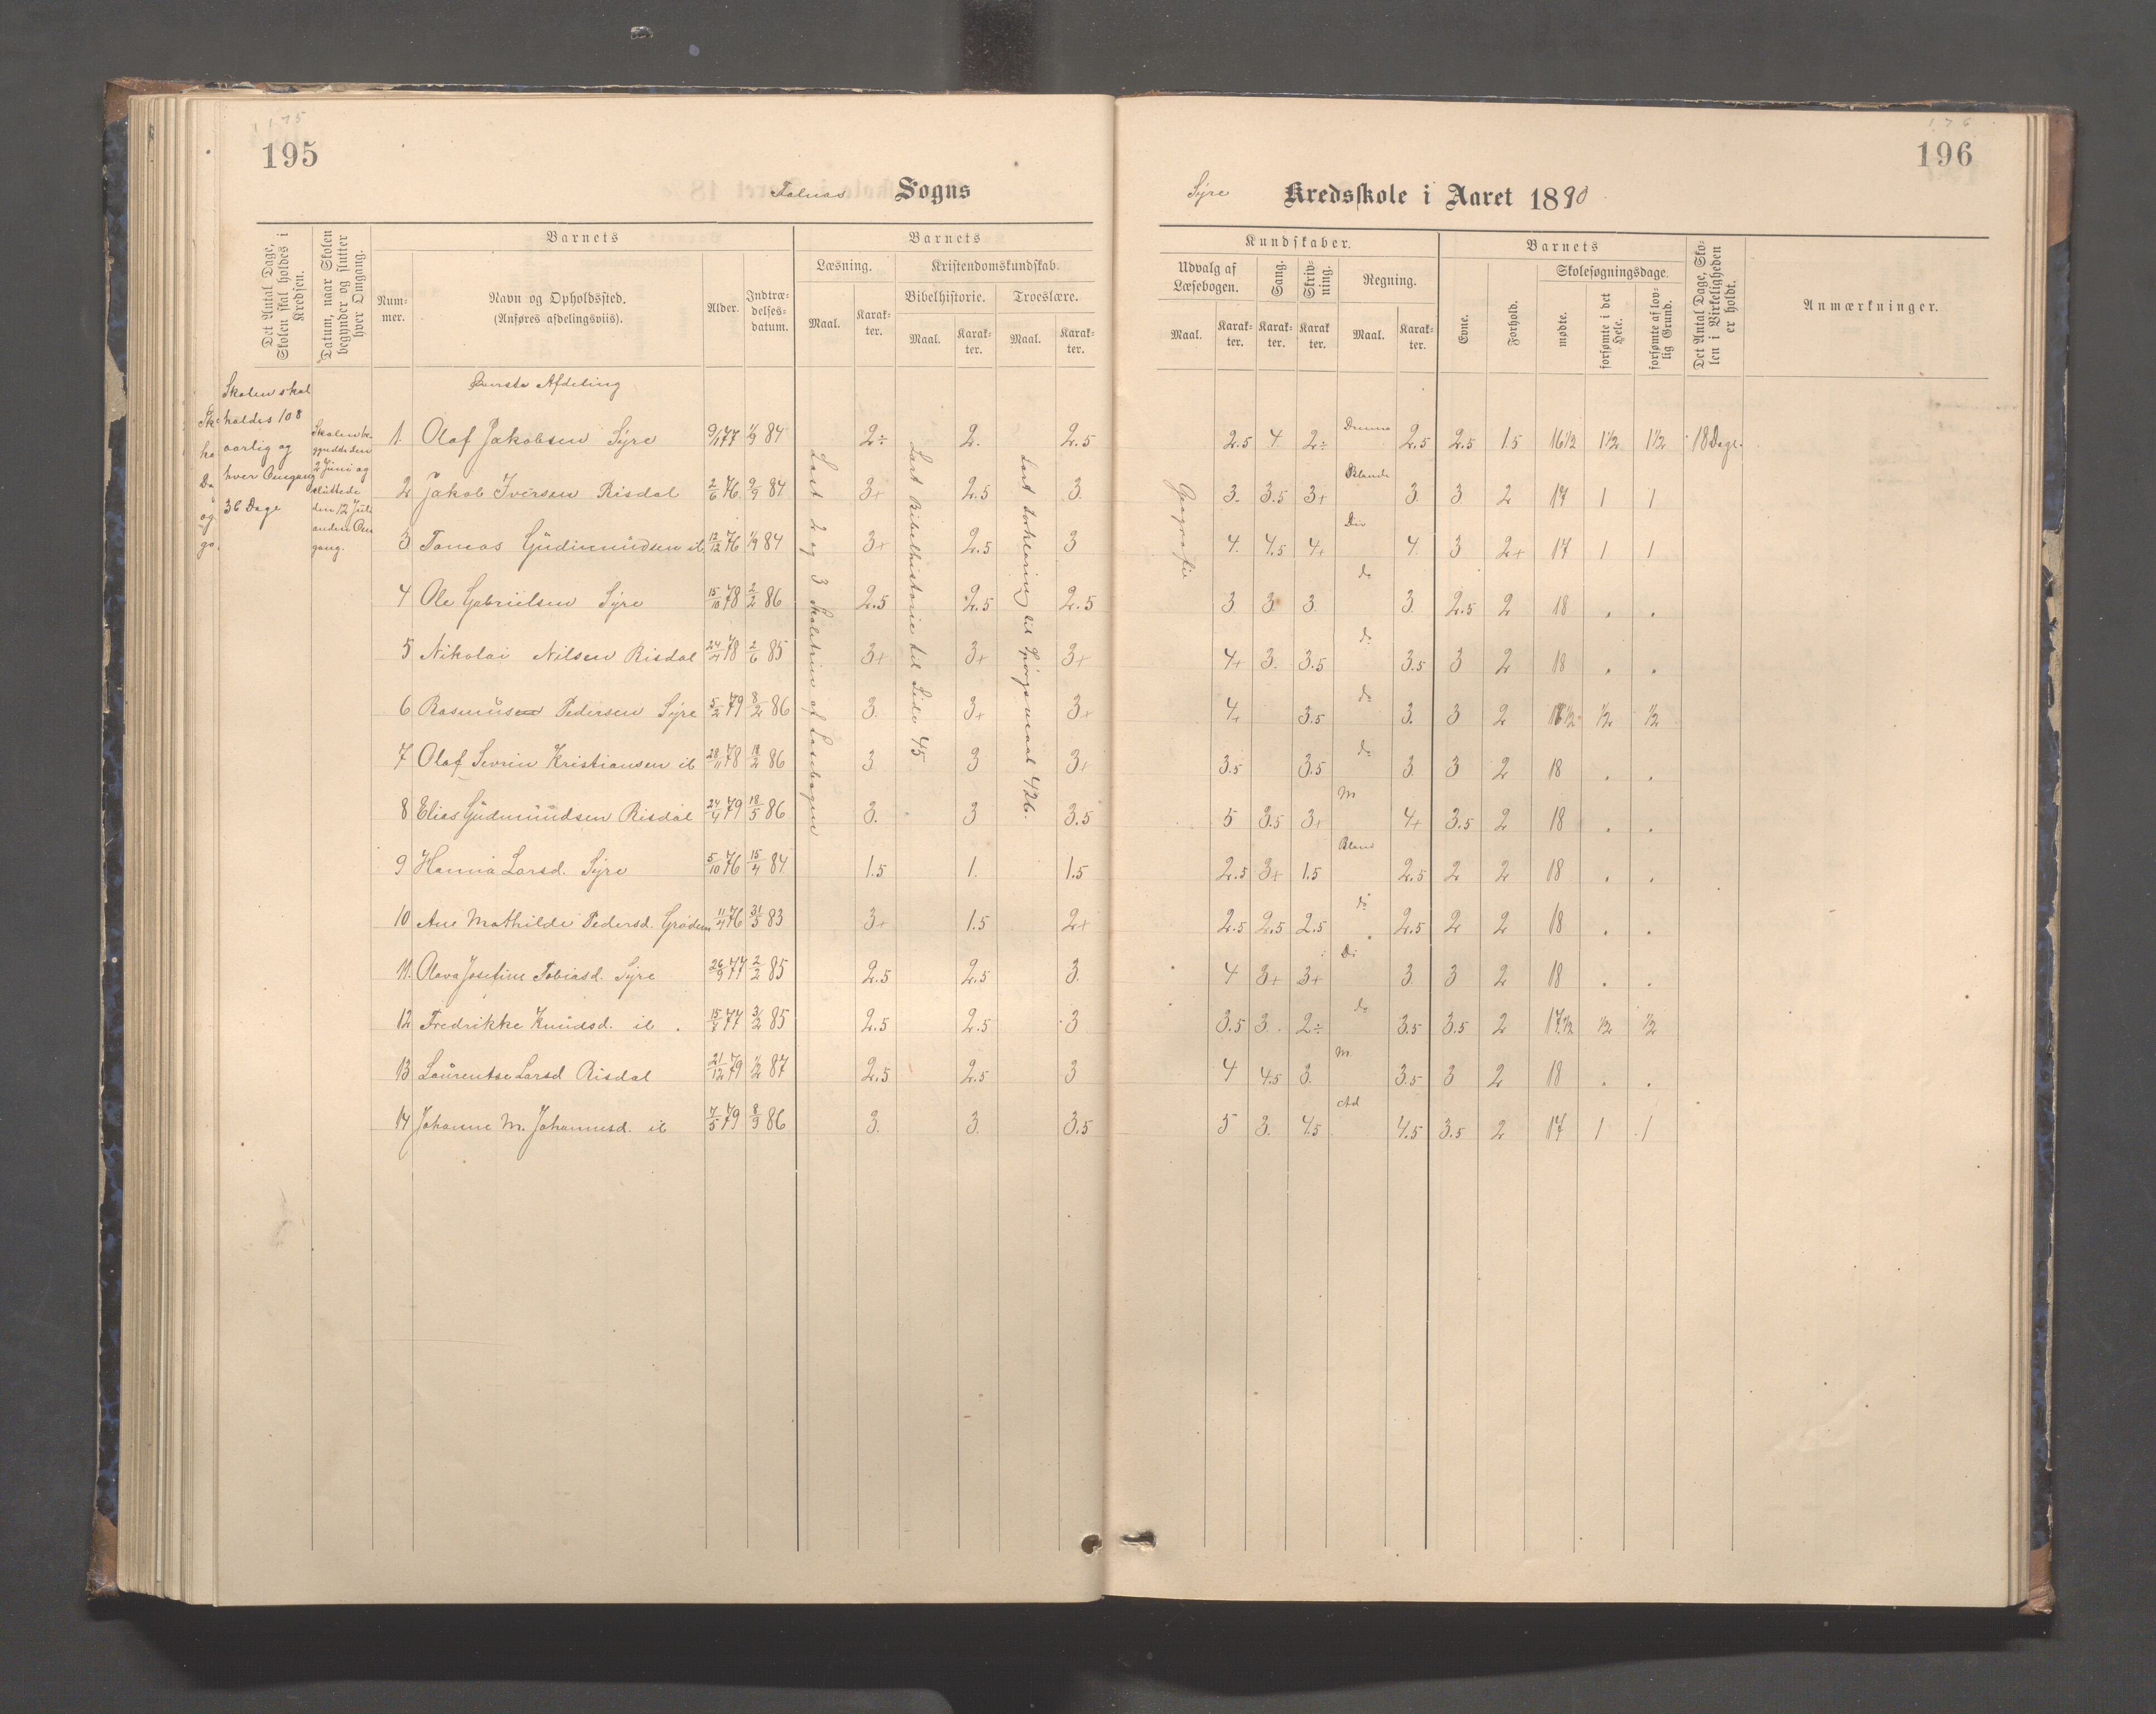 175
195
Falnæs Sogns
Det Antal Dage, Skolen skal holdes i Kredsen.
Datum, naar Skolen begynder og slutter hver Omgang.
Barnets
Num-
mer.
Navn og Opholdssted.
(Anføres afdelingsviis).
Alder.
Indtræ-
delses-
datum.
Barnets
Læsning.
Maal.
Karak-
ter.
Kristendomskundskab.
Bibelhistorie.
Maal.
Karak-
ter.
Troeslære.
Maal.
Karak-
ter.
Skolen skal
holdes 108
aarlig og
hver Omgang
36 Dage
Skolen be-
gyndte den
2 Juni og
sluttede
den 12 Juli
anden Om
gang.
Øverste Afdeling
Læst 2 og 3 Skoletrin af Læsebogen
Læst Bibelhistorie til Side 45
Læst Forklaring til Spørgsmaal 426.
1. Olaf Jakobsen Syre 9/1 77 1/9 84 2÷ 2. 2.5
2 Jakob Iversen Risdal 2/6 76. 2/9 84 3+ 2.5 3.
3 Tomas Gudmundsen ib 12/12 76 1/9 84 3+ 2.5 3
4 Ole Gabrielsen Syre 15/10 78 2/2 86 2.5 2.5 2.5
5 Nikolai Nilsen Risdal 24/4 78 2/6 85 3+ 3+ 3+
6 Rasmus Pedersen Syre 5/2 79 8/2 86 3. 3+ 3+
7 Olaf Sevrin Kristiansen ib 28/11 78 18/2 86 3 3 3+
8 Elias Gudmundsen Risdal 24/4 79 18/5 86 3. 3 3.5
9 Hanna Larsd. Syre 5/10 76 15/4 84 1.5 1. 1.5
10 Ane Mathilde Pedersd. Grødem 11/4 76 31/5 83 3+ 1.5 2+
11. Olava Josefine Tobiasd. Syre 26/9 77 2/2 85 2.5 2.5 3.
12 Fredrikke Knudsd. ib. 15/4 77 3/2 85 2.5 2.5 3
13 Laurentse Larsd Risdal 21/12 79 1/2 87 2.5 2.5 3
14 Johanne M. Johannesd. ib 7/5 79 8/9 86 3. 3. 3.5
176
196
Syre Kredsskole i Aaret 1890
Kundskaber.
Udvalg af
Læsebogen.
Maal.
Karak-
ter.
Sang.
Karak-
ter.
Skriv-
ning.
Karak
ter.
Regning.
Maal.
Karak-
ter.
Barnets
Evne.
Forhold.
Skolesøgningsdage.
mødte.
forsømte i det Hele.
forsømte af lov-
lig Grund.
Det Antal Dage, Sko-
len i Virkeligheden
er holdt.
Anmærkninger.
Geografi
2.5 4. 2÷ 2.5 2.5 1.5 16½ 1½ 1½ 18 Dage.
3. 3.5 3+ Blande 3. 3 2 17 1 1
4. 4.5 4+ Div 4. 3 2+ 17 1 1
3 3 3. do 3. 2.5 2 18 . .
4+ 3. 3.5 do 3.5 3 2 18 . .
4+ 3.5 do 3. 3 2 17½ ½ ½
3.5 3.5 do 3. 3 2 18 . .
5 3.5 3+ M 4+ 3.5 2 18 . .
2.5 3+ 1.5 Bland 2.5 2 2 18 . .
2.5 2.5 2.5 do 2.5 2 2 18 . .
4 3+ 3+ Di 3. 3 2 18 . .
3.5 3. 2÷ do 3.5 3.5 2 17½ ½ ½
4 4.5 3. M. 3.5 3 2 18 . .
5 3. 4.5 Ad 4.5 3.5 2 17 1 1